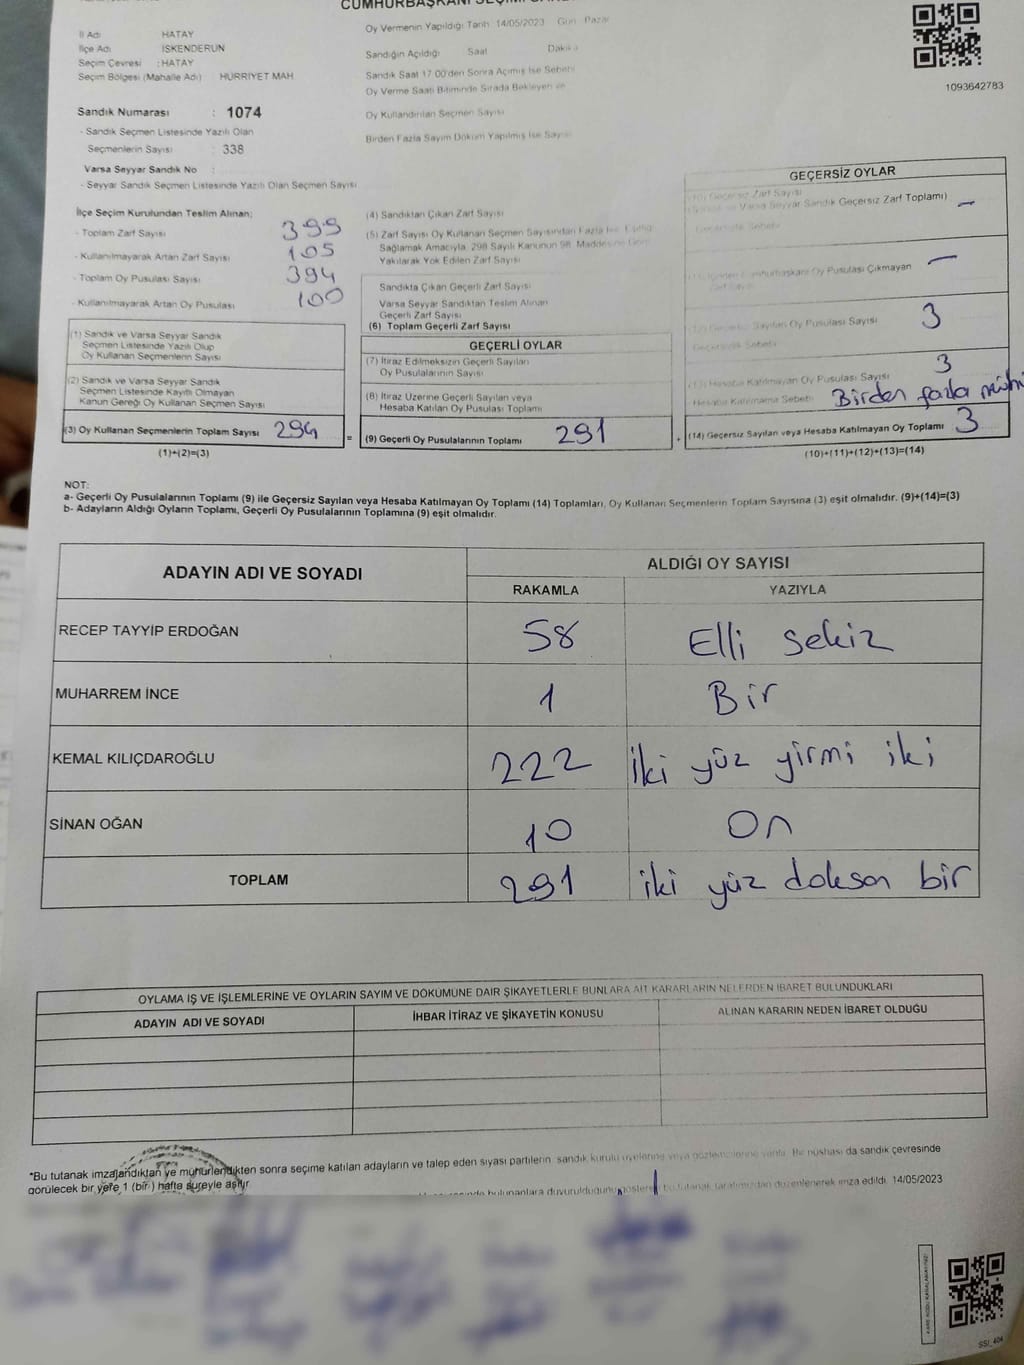 İl Adı : HATAY
İlçe Adı İSKENDERUN
Seçim Çevresi : HATAY
Seçim Bölgesi (Mahalle Adı) : HÜRRİYET MAH
Sandık Numarası : 1074
- Sandık Seçmen Listesinde Yazılı Olan
Seçmenlerin Sayısı : 338
Varsa Seyyar Sandık No :
- Seyyar Sandık Seçmen Listesinde Yazılı Olan Seçmen Sayısı
Oy Vermenin Yapıldığı Tarih 14/05/2023 Gün Pazar
Sandığın Açıldığı Saat Dakika
Sandık Saat 17 00'den Sonra Açımış İse Sebebi
Oy Verme Saati Bitiminde Sırada Bekleyen ve
Oy Kullandırılan Seçmen Sayısı
Birden Fazla Sayım Döküm Yapılmış İse Sayısı
1093642783
İlçe Seçim Kurulundan Teslim Alınan;
- Toplam Zarf Sayısı 399
- Kullanılmayarak Artan Zarf Sayısı 105
- Toplam Oy Pusulası Sayısı 394
- Kullanılmayarak Artan Oy Pusulası 100
(1) Sandık ve Varsa Seyyar Sandık
Seçmen Listesinde Yazılı Olup
Oy Kullanan Seçmenlerin Sayısı
(2) Sandık ve Varsa Seyyar Sandık
Seçmen Listesinde Kayıtlı Olmayan
Kanun Gereği Oy Kullanan Seçmen Sayısı
(3) Oy Kullanan Seçmenlerin Toplam Sayısı 294
(1)+(2)=(3)
(4) Sandıktan Çıkan Zarf Sayısı
(5) Zarf Sayısı Oy Kullanan Seçmen Sayısından Fazla İse
Sağlamak Amacıyla, 298 Sayılı Kanunun 98. Maddesine Göre
Yakılarak Yok Edilen Zarf Sayısı
Sandıkta Çıkan Geçerli Zarf Sayısı
Varsa Seyyar Sandıktan Teslim Alınan
Geçerli Zarf Sayısı
(6) Toplam Geçerli Zarf Sayısı
GEÇERLİ OYLAR
(7) İtiraz Edilmeksizin Geçerli Sayılan
Oy Pusulalarının Sayısı
(8) İtiraz Üzerine Geçerli Sayılan veya
Hesaba Katılan Oy Pusulası Toplamı
= (9) Geçerli Oy Pusulalarının Toplamı 291 +
GEÇERSİZ OYLAR
(10) Geçersiz Zarf Sayısı
ve Varsa Seyyar Sandık Geçersiz Zarf Toplamı) —
Geçersizlik Sebebi
Cumhurbaşkanı Oy Pusulası Çıkmayan —
Zarf Sayısı
Sayılan Oy Pusulası Sayısı 3
Geçersizlik Sebebi
(13) Hesaba Katılmayan Oy Pusulası Sayısı 3
Hesaba Katılmama Sebebi Birden fazla
(14) Geçersiz Sayılan veya Hesaba Katılmayan Oy Toplamı 3
(10)+(11)+(12)+(13)=(14)
NOT:
a- Geçerli Oy Pusulalarının Toplamı (9) ile Geçersiz Sayılan veya Hesaba Katılmayan Oy Toplamı (14) Toplamları, Oy Kullanan Seçmenlerin Toplam Sayısına (3) eşit olmalıdır. (9)+(14)=(3)
b- Adayların Aldığı Oyların Toplamı, Geçerli Oy Pusulalarının Toplamına (9) eşit olmalıdır.
ADAYIN ADI VE SOYADI ALDIĞI OY SAYISI
RAKAMLA YAZIYLA
RECEP TAYYİP ERDOĞAN 58 Elli sekiz
MUHARREM İNCE 1 Bir
KEMAL KILIÇDAROĞLU 222 iki yüz yirmi iki
SİNAN OĞAN 10 On
TOPLAM 291 iki yüz doksan bir
OYLAMA İŞ VE İŞLEMLERİNE VE OYLARIN SAYIM VE DÖKÜMÜNE DAİR ŞİKAYETLERLE BUNLARA AİT KARARLARIN NELERDEN İBARET BULUNDUKLARI
ADAYIN ADI VE SOYADI İHBAR İTİRAZ VE ŞİKAYETİN KONUSU ALINAN KARARIN NEDEN İBARET OLDUĞU
*Bu tutanak imzalandıktan ve mühürlendikten sonra seçime katılan adayların ve talep eden siyasi partilerin sandık kurulu üyelerine veya gözlemcilerine verilir. Bir nüshası da sandık çevresinde
görülecek bir yere 1 (bir) hafta süreyle asılır
bulunanlara duyurulduğunu gösteren bu tutanak tarafımızdan düzenlenerek imza edildi. 14/05/2023